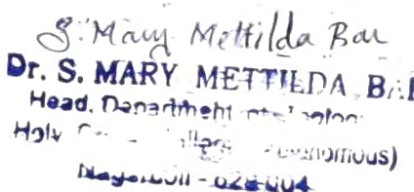 S. Mary Mettilda Bai
Dr. S. MARY METTILDA BAI
Head, Department of
Holy (Autonomous)
Nagercoil - 629 004